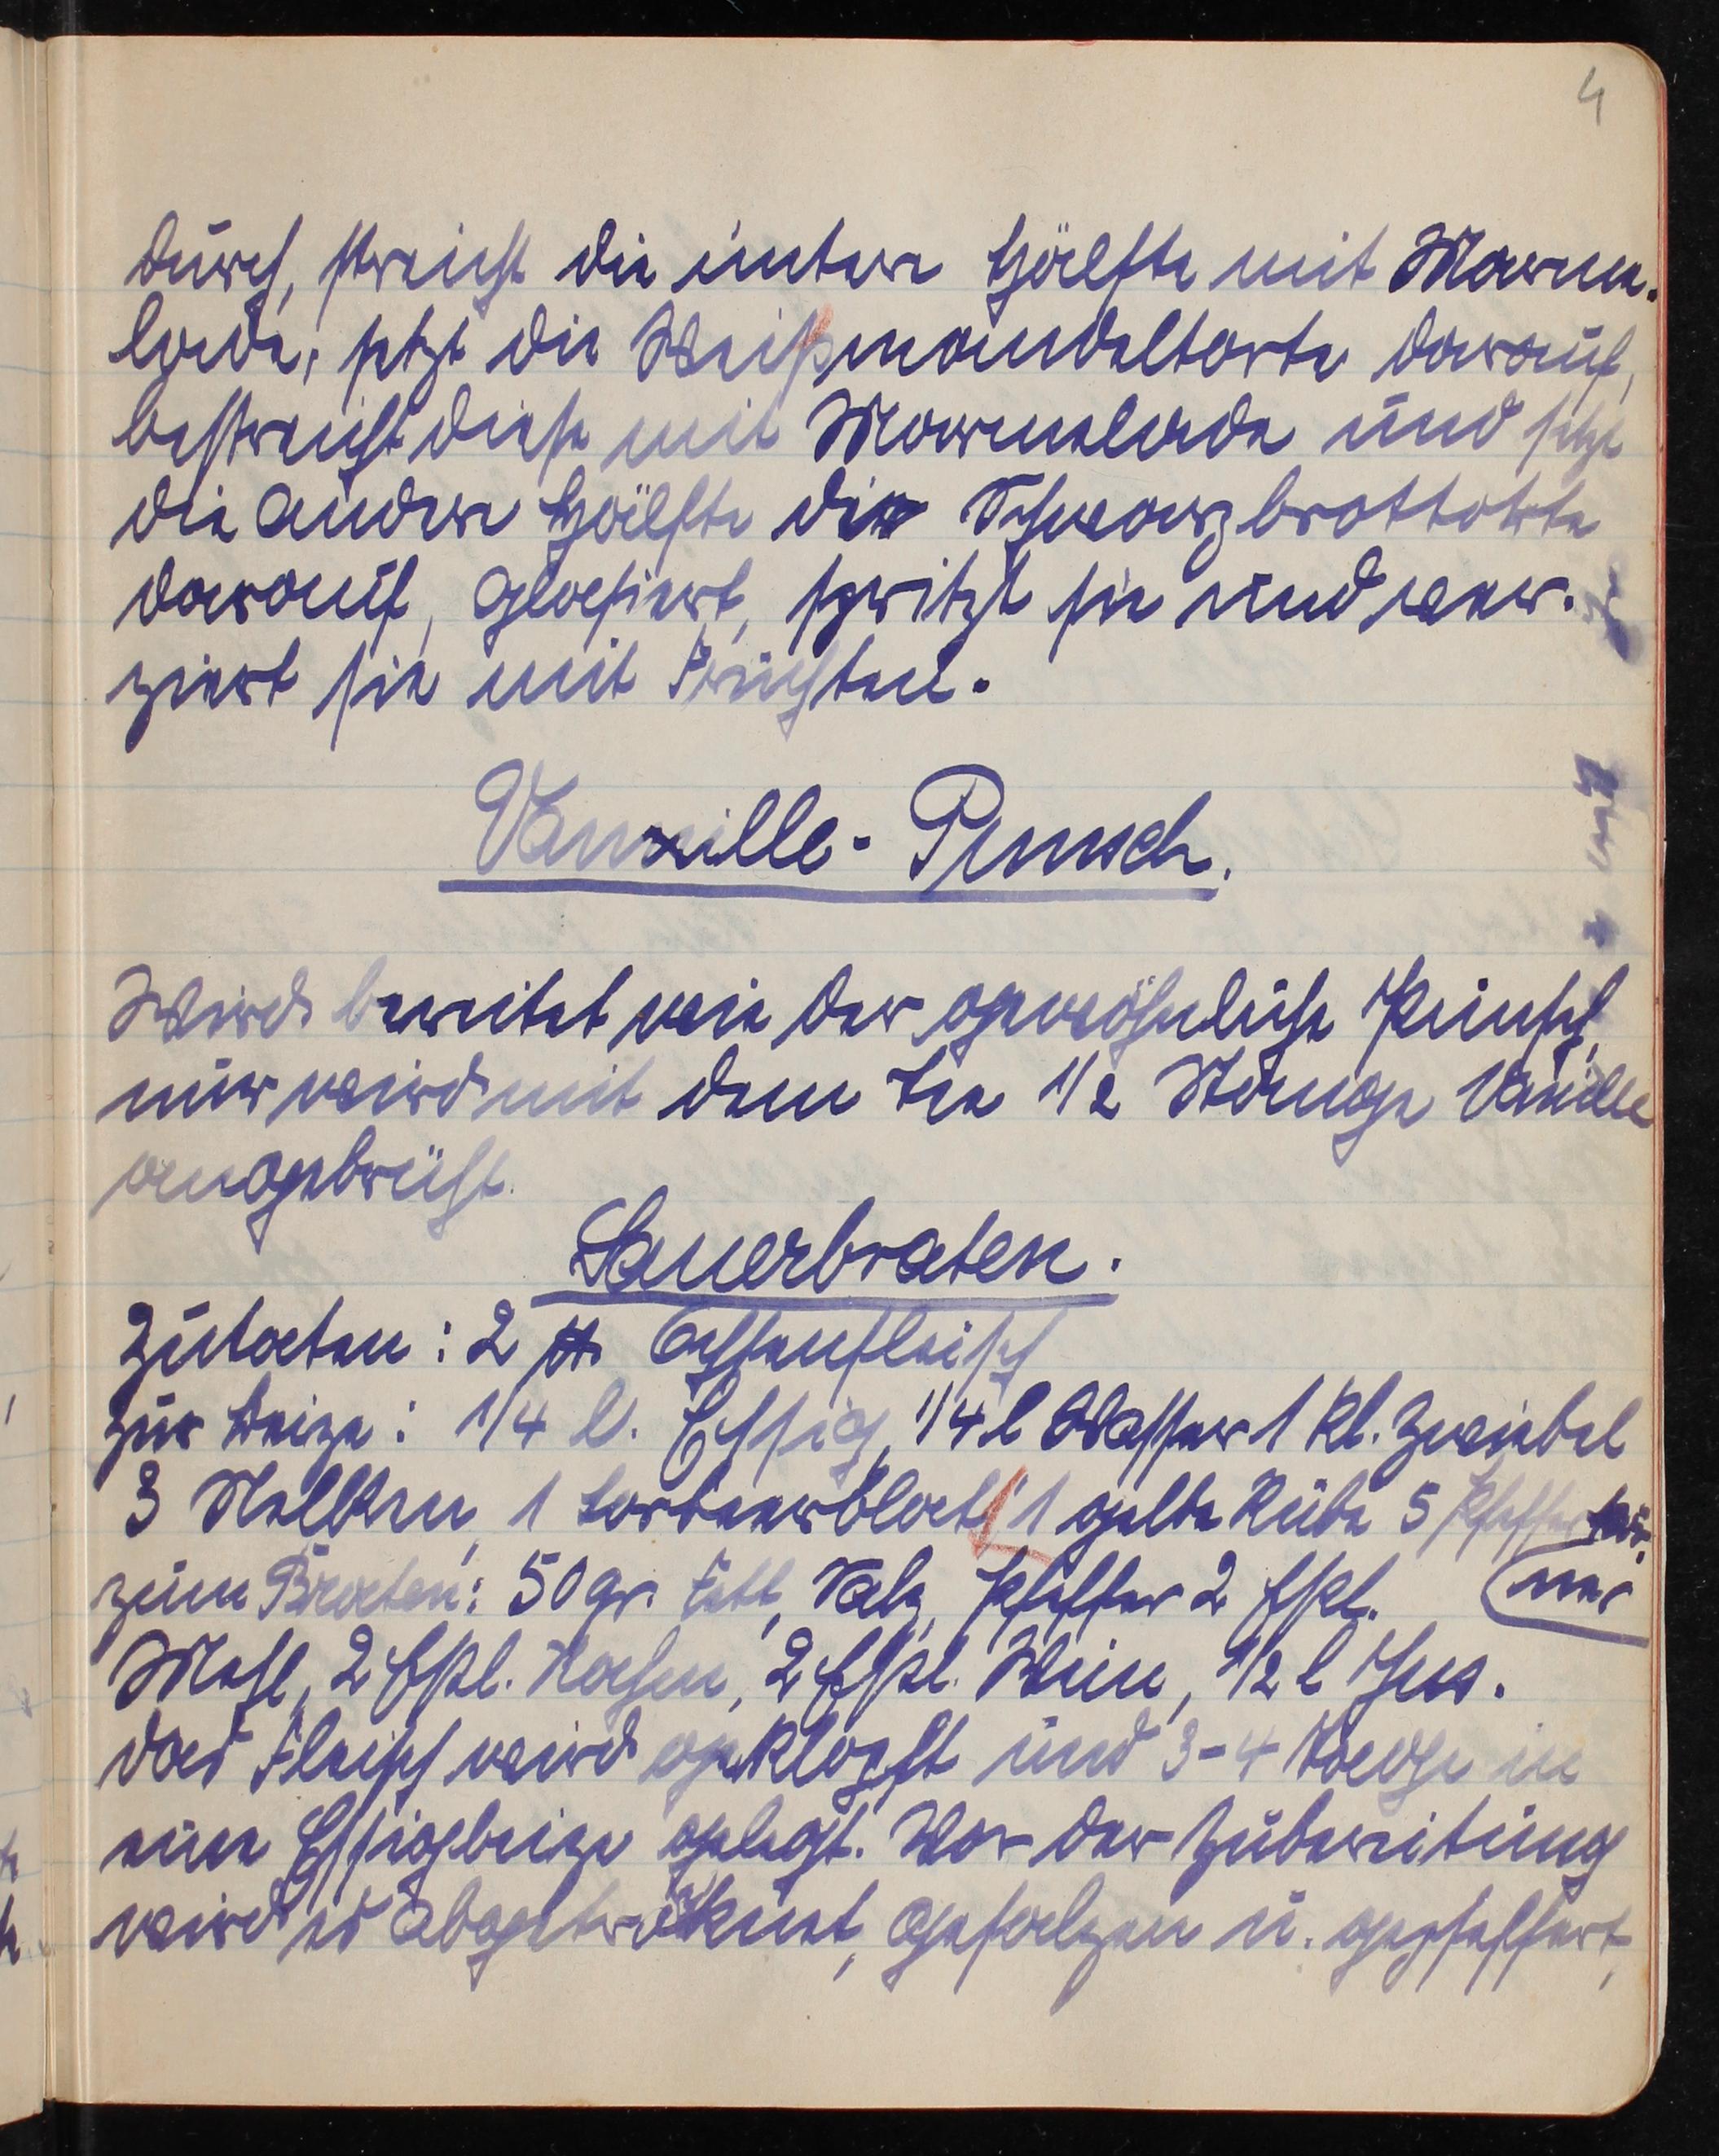 4
durch, streicht die untere Hälfte mit Marme-
lade, setzt die Weißmandeltorte darauf,
bestreicht diese mit Marmelade und setzt
die andere Hälfte der Schwarzbrottorte
darauf, glasiert, spritzt sie und ver-
ziert sie mit Früchten.
Vanille-Punsch.
Wird bereitet wie der gewöhnliche Punsch,
nur wird mit dem Tee 1/2 Stange Vanille
angebrüht.
Sauerbraten.
Zutaten: 2 ℔ Ochsenfleisch
zur Beize: 1/4 l. Essig, 1/4 l Wasser 1 kl. Zwiebel
3 Nelken, 1 Lorbeerblatt, 1 gelbe Rübe 5 Pfefferkör-
ner
zum Braten: 50 gr. Fett, Salz, Pfeffer 2 Eßl.
Mehl, 2 Eßl. Rahm, 2 Eßl. Wein, 1/2 l Jus.
Das Fleisch wird geklopft und 3-4 Tage in
eine Essigbeize gelegt. Vor der Zubereitung
wird es abgetrocknet, gesalzen u. gepfeffert,